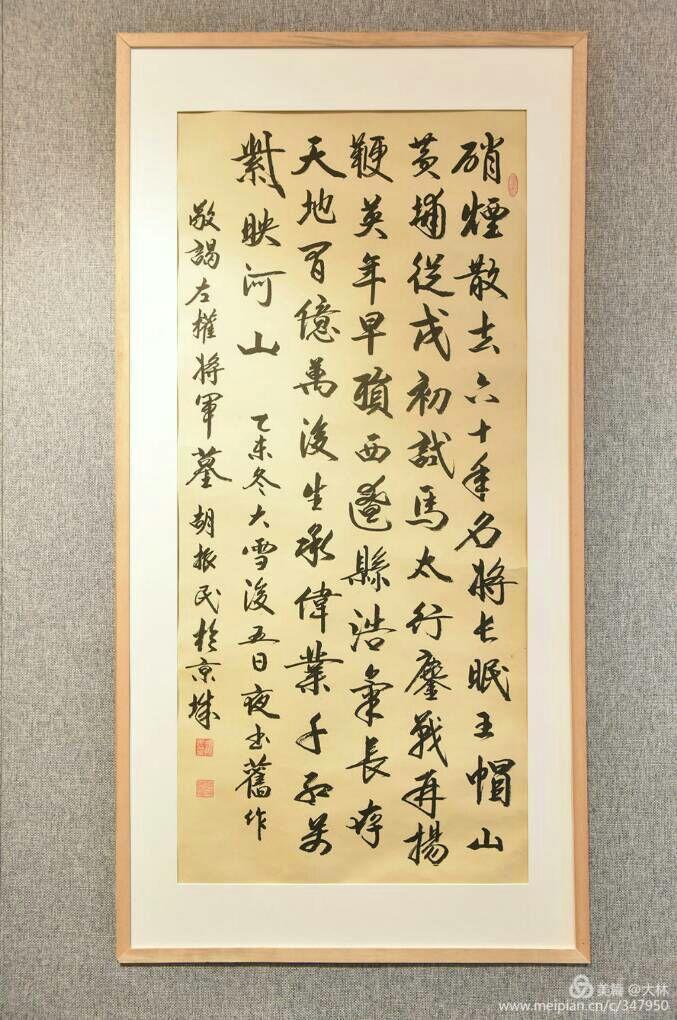 硝煙散去六十年名将长眠玉帽山
黄埔從戎初試馬太行鏖戰再揚
鞭英年早殞西遼縣浩氣長存
天地間億萬後生承偉業千紅万
紫映河山 乙未冬大雪後五日夜书舊作
敬謁左權将軍墓 胡振民於京城
美篇 @大林
www.meipian.cn/c/347950